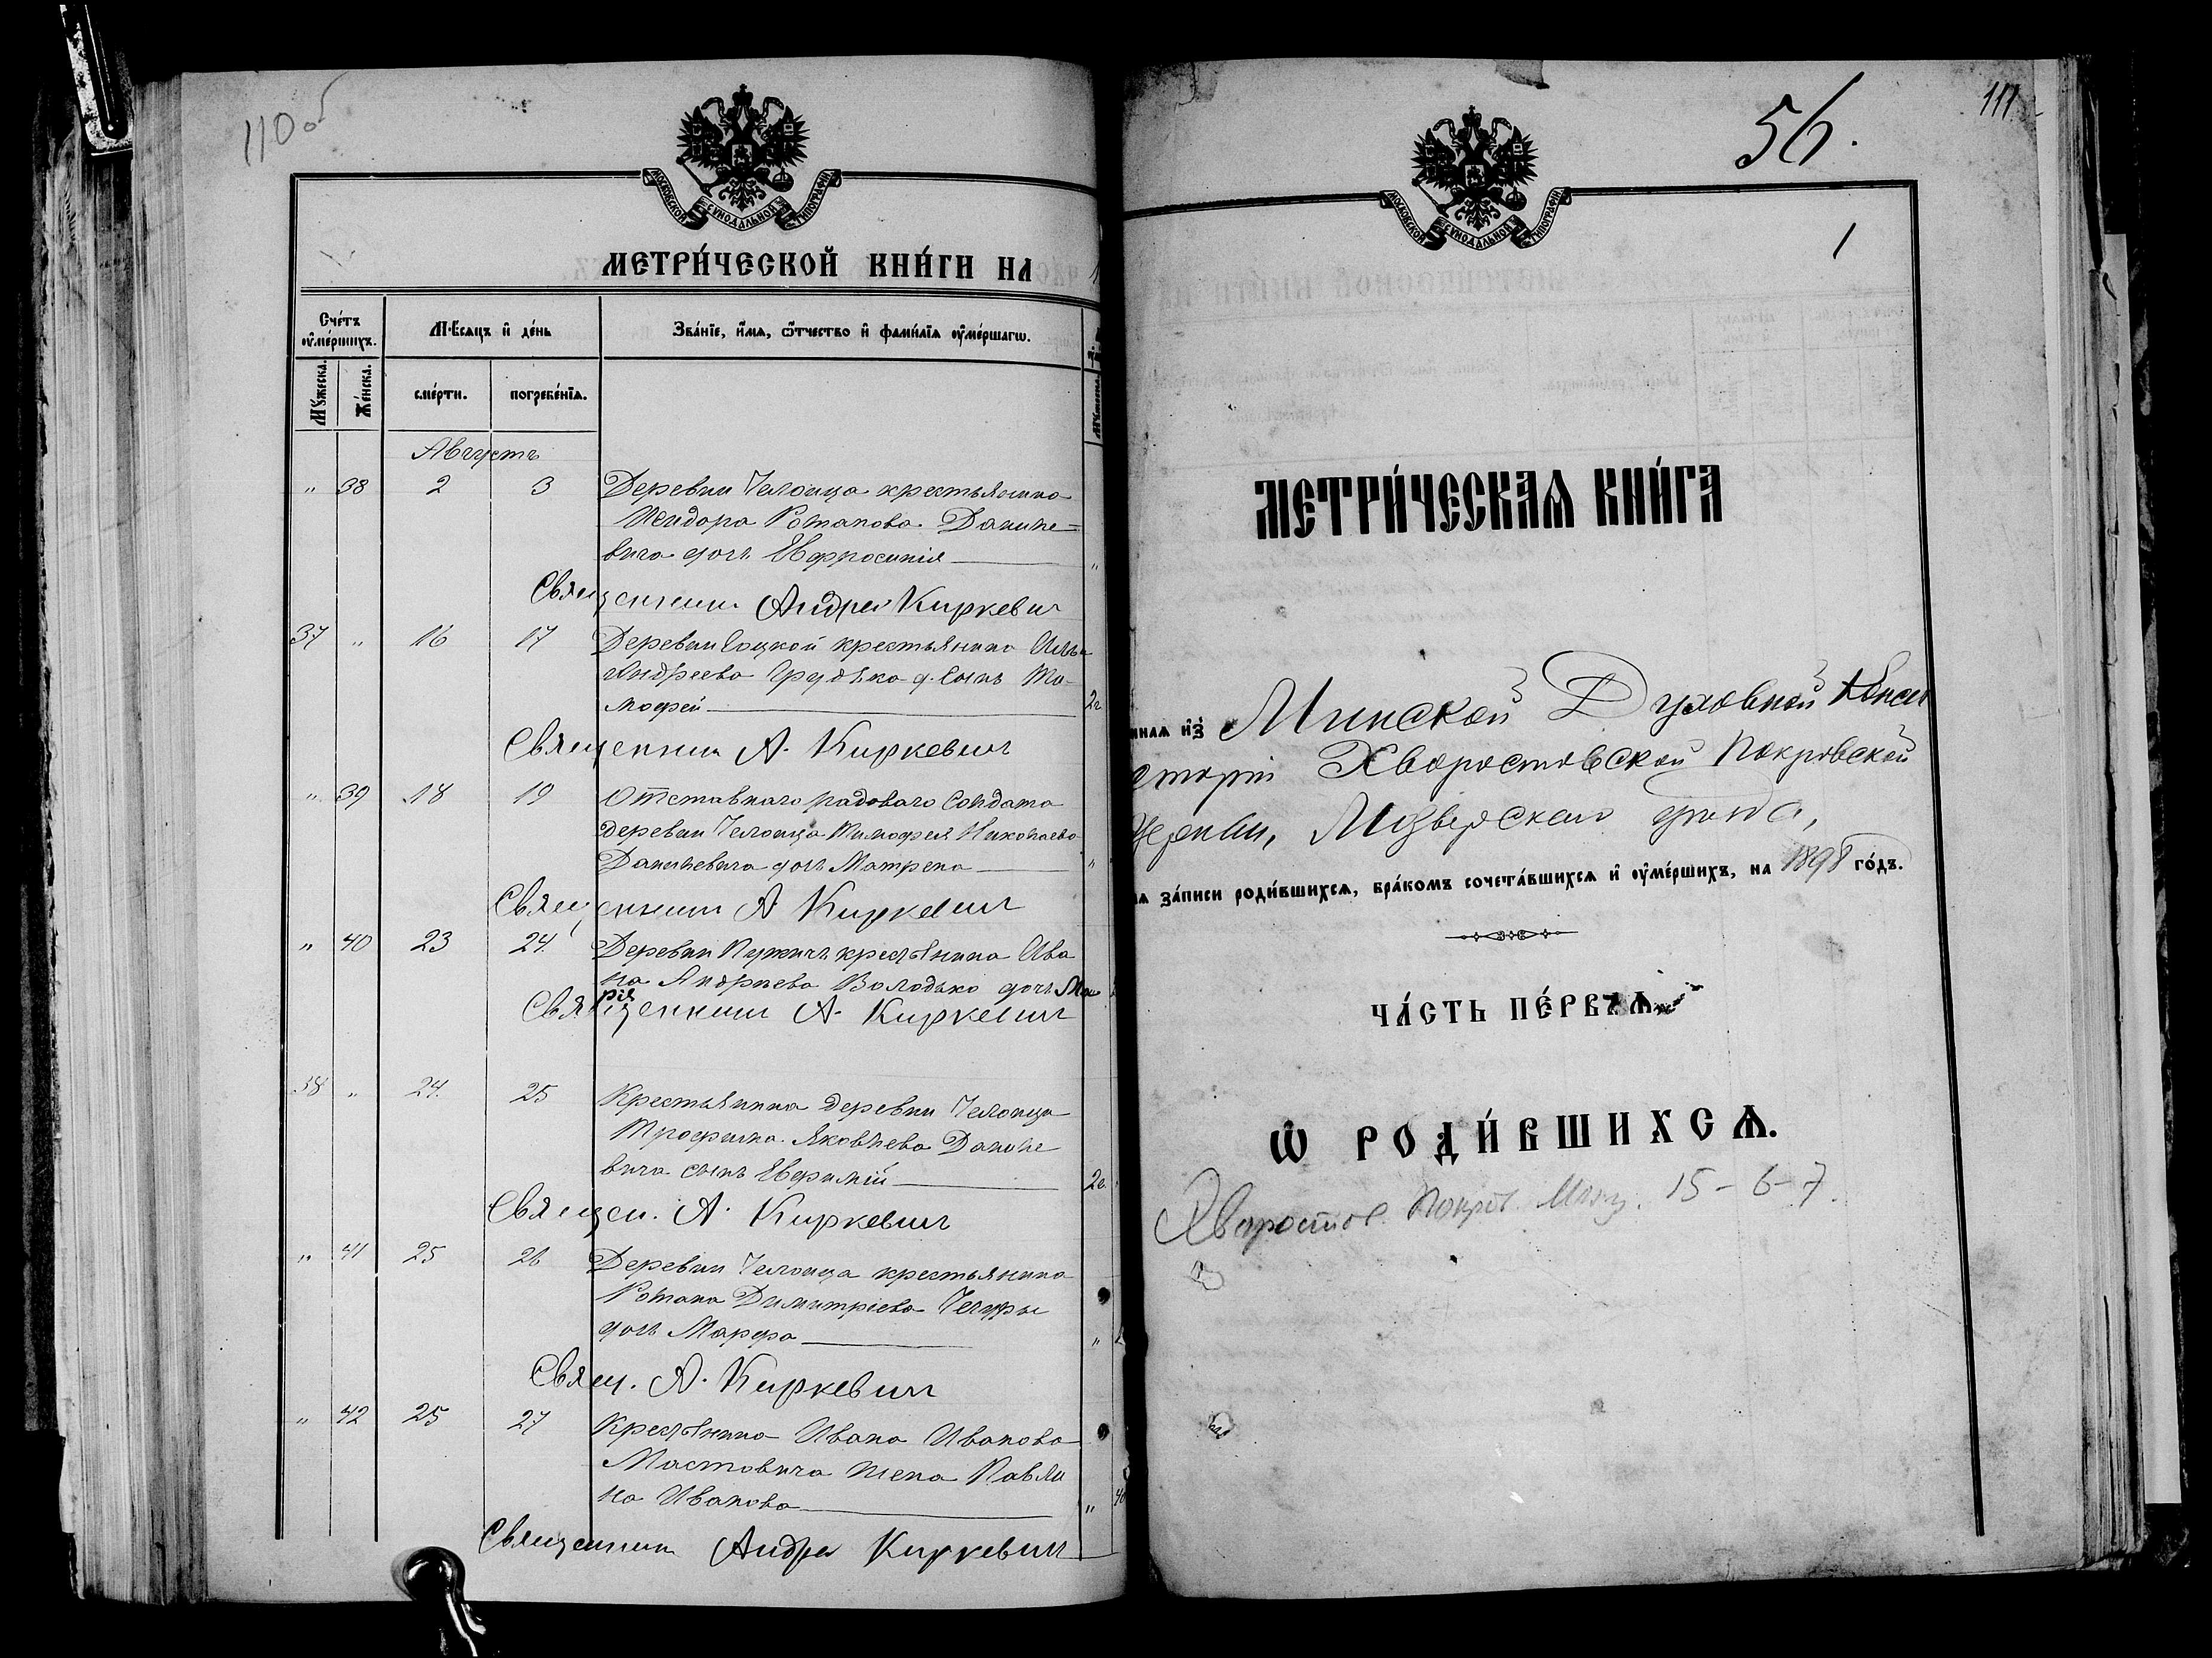 110 об
МОСКОВСКОЙ СѴНОДАЛЬНОЙ ТИПОГРАФІИ
МЕТРИ́ЧЕСКОЙ КНИ́ГИ НА
Сче́тъ оу҆ме́ршихъ.
Мѣсяцъ и҆ де́нь
Зва́нїе, и҆́мя, ѻ҆́тчество и҆ фами́лїя оу҆ме́ршагѡ.
Мꙋ́жеска.
Же́нска.
сме́рти.
погребе́нїя.
Августъ
" 38 2 3 Деревни Челонца крестьянина
Исидора Потапова Даниле=
вича дочь Евфросинія
Священник Андрей Киркевич
37 " 16 17 Деревни Гоцкой крестьянина Ильи
Андреева Грудѣко д. сынъ Ти-
мофей 2 г
Священник А. Киркевич
" 39 18 19 Отставнаго рядоваго Солдата
деревни Челонца Тимофея Николаева
Данилевича дочь Матрена "
Священник А Киркевич
" 40 23 24. Деревни Пужичъ крестьянина Ива
на Андреева Володько дочь Ма
рія
Священник А. Киркевич
38 " 24. 25 Крестьянина деревни Челонца
Трофима Яковлева Даниле
вича сынъ Евфимій 2 г.
Священ. А. Киркевич
" 41 25 26 Деревни Челонца крестьянина
Романа Димитріева Чечуры
дочь Марфа "
Свящ. А. Киркевич
" 42 25 27 Крестьянина Ивана Иванова
Мастовича жена Павли
на Иванова " 40
Священник Андрей Киркевич
111
56.
МОСКОВСКОЙ СѴНОДАЛЬНОЙ ТИПОГРАФІИ
1
МЕТРИ́ЧЕСКАѦ КНИ́ГА
нная и҆з̾ Минской Духовной Консис
торіи Хворостовской Покровской
Церкви, Мозырскаго уѣзда,
я за́писи роди́вшихся, бра́комъ сочета́вшихся и҆ оу҆ме́ршихъ, на 1898 го́дъ.
ЧА́СТЬ ПЕ́РВАѦ
Ѡ҆ РОДИ́ВШИХСѦ.
Хворостов. Покров. Мозыр. 15-6-7.